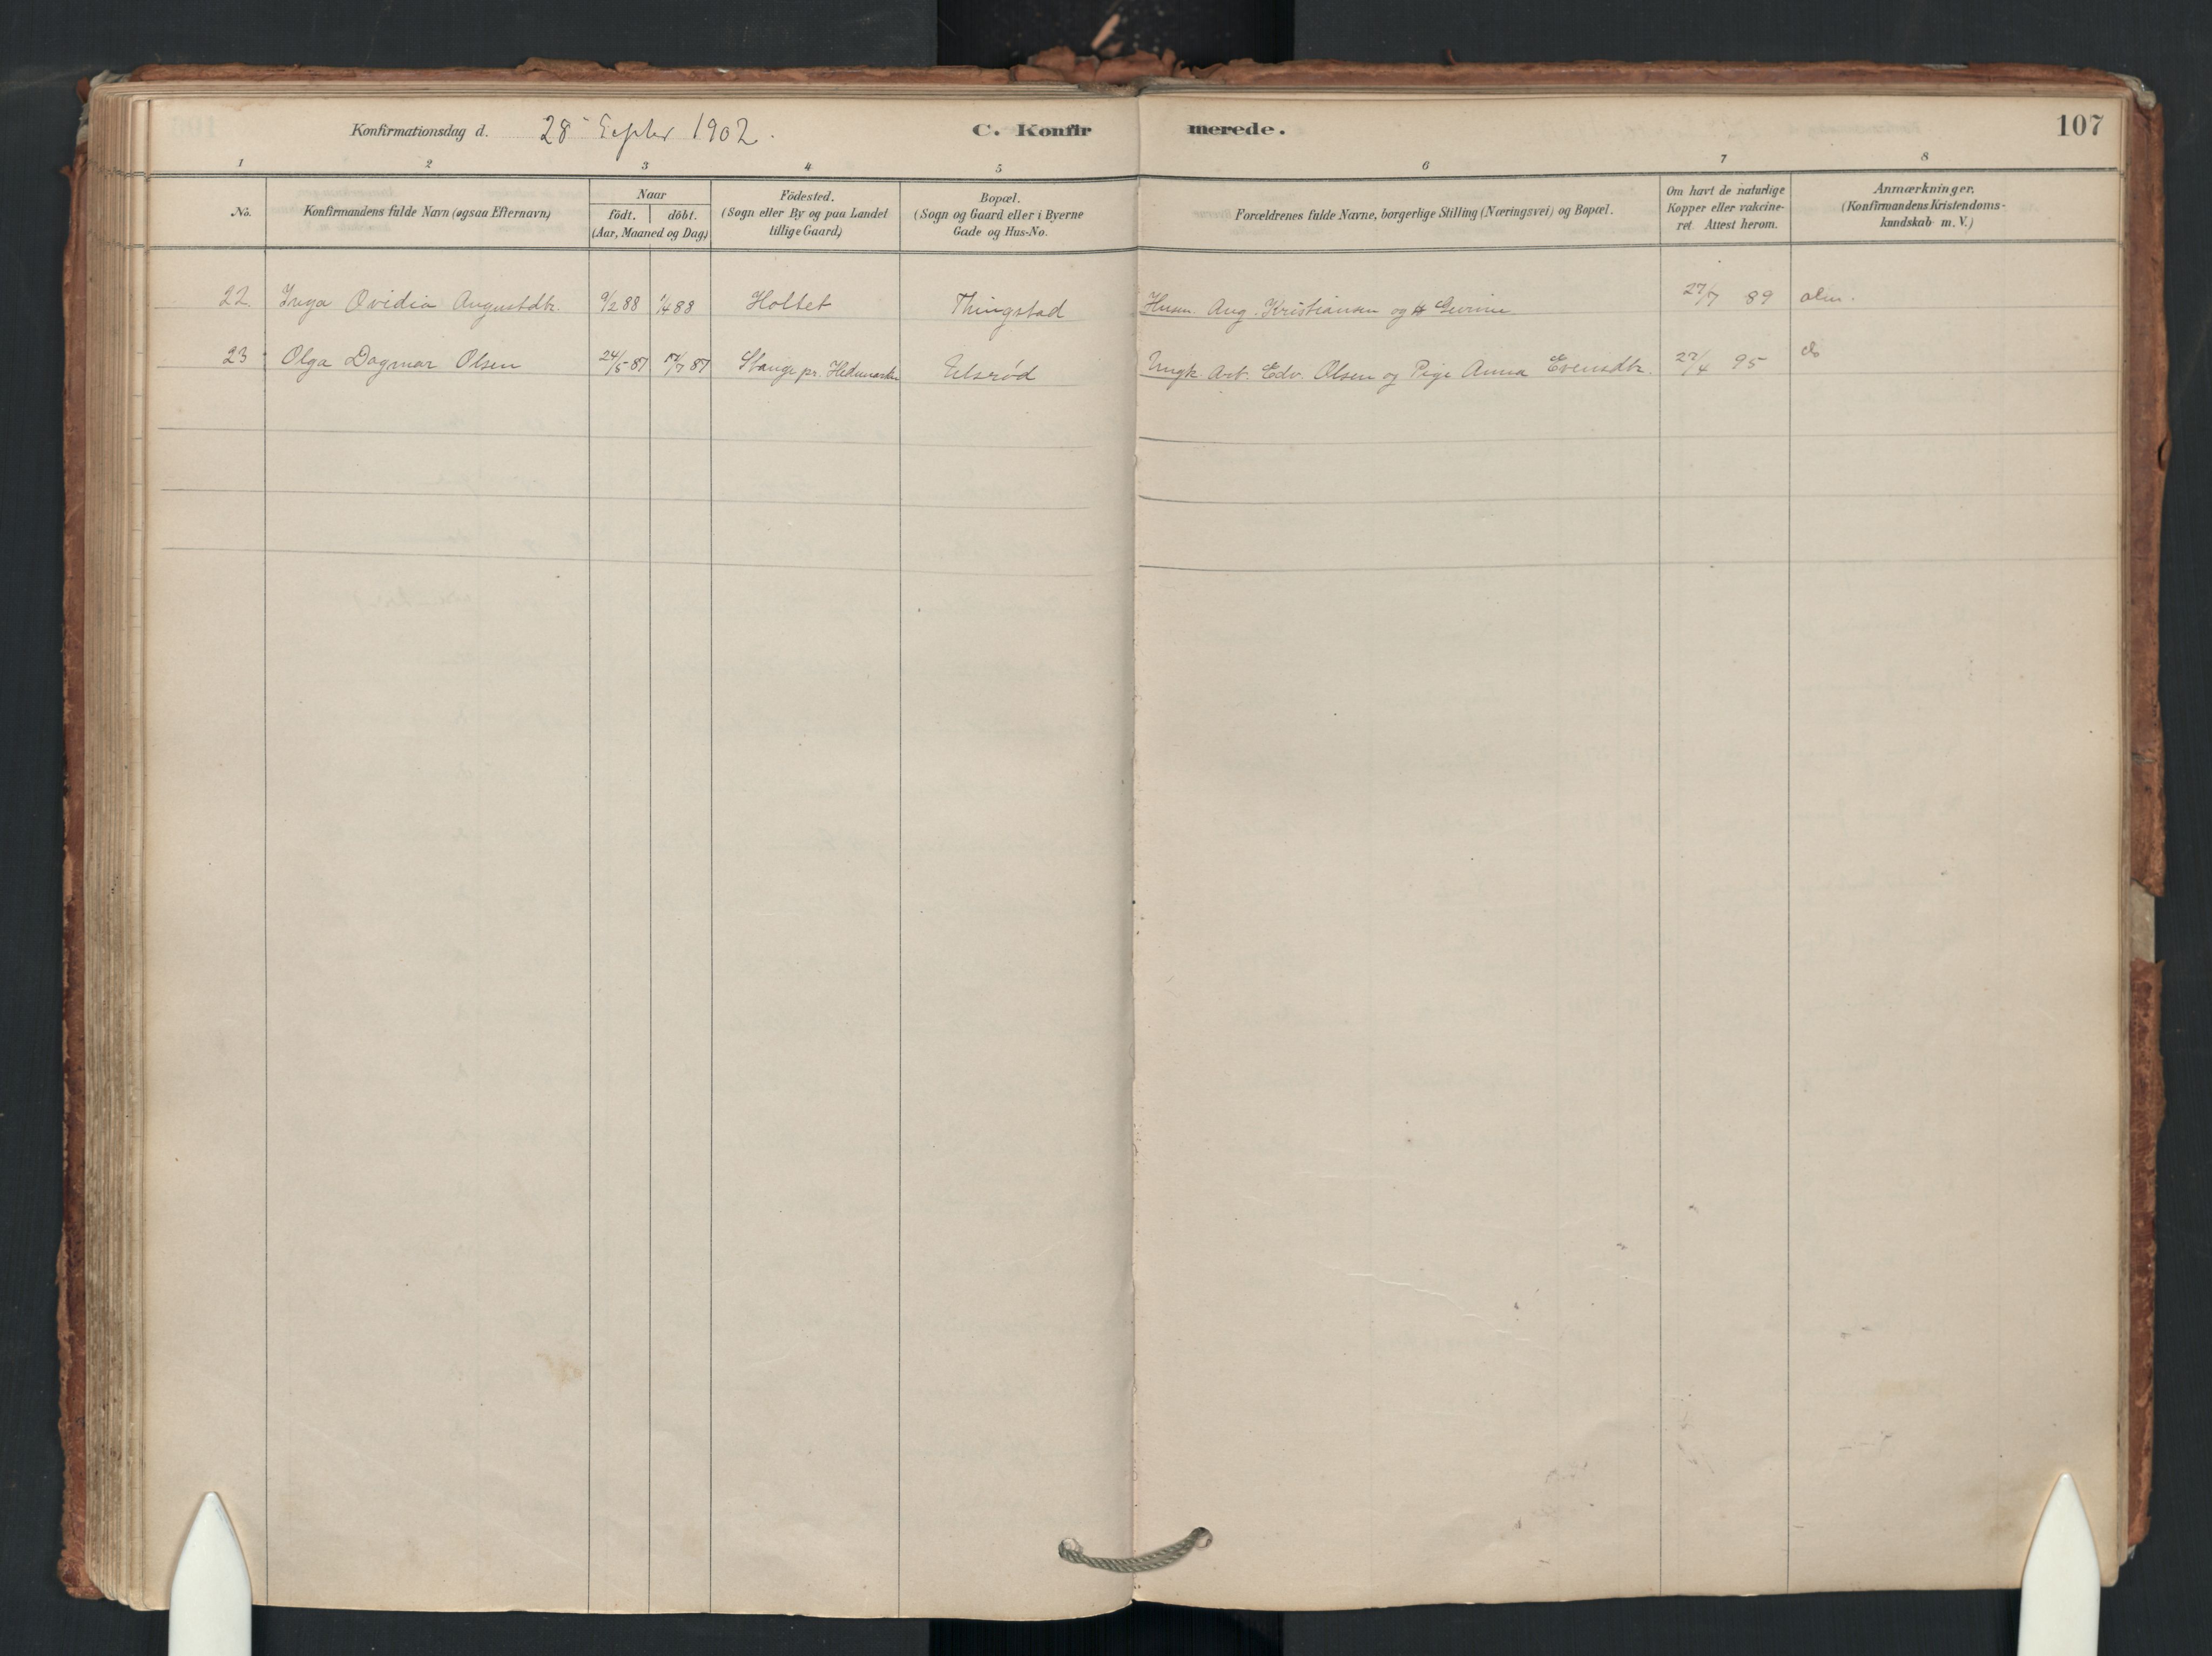 Konfirmationsdag d. 28 Septbr 1902. C. Konfir merede. 107
1 2 3 4 5 6 7 8
No. Konfirmandens fulde Navn (ogsaa Efternavn) Naar födt. döbt. (Aar, Maaned og Dag) Födested. (Sogn eller By og paa Landet tillige Gaard) Bopæl. (Sogn og Gaard eller i Byerne Gade og Hus-No. Forældrenes fulde Navne, borgerlige Stilling (Næringsvei) og Bopæl. Om havt de naturlige Kopper eller vakcineret. Attest herom. Anmærkninger. (Konfirmandens Kristendomskundskab m. V.)
22. Inga Ovidia Augustdtr. 9/2 88 1/4 88 Holtet Thingstad Husm. Aug. Kristiansen og H Gurine 27/7 89 alm.
23 Olga Dagmar Olsen 24/5 87 17/7 87 Stange pr. Hedemarken Elsröd Ungk. Arb. Edv. Olsen og Pige Anna Evensdtr. 27/4 95 do